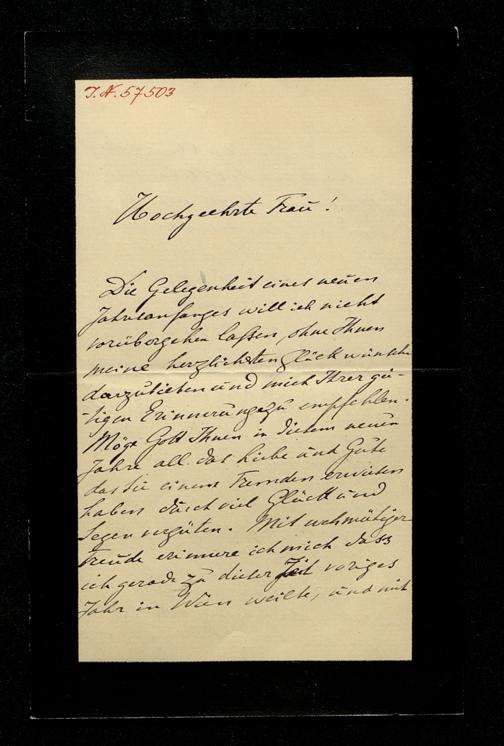 J.N. 57503
Hochgeehrte Frau!
Die Gelegenheit eines neuen
Jahresanfanges will ich nicht
vorübergehen laßen, ohne Ihnen
meine herzlichsten Glückwünsche
darzubieten und mich Ihrer gü-
tigen Erinnerung zu empfehlen.
Möge Gott Ihnen in diesem neuen
Jahre all das Liebe und Gute
das Sie einem Fremden erwiesen
haben durch viel Glück und
Segen vergüten. Mit wehmütiger
Freude erinnere ich mich dass
ich gerade zu dieser Zeit voriges
Jahr in Wien weilte, und mit